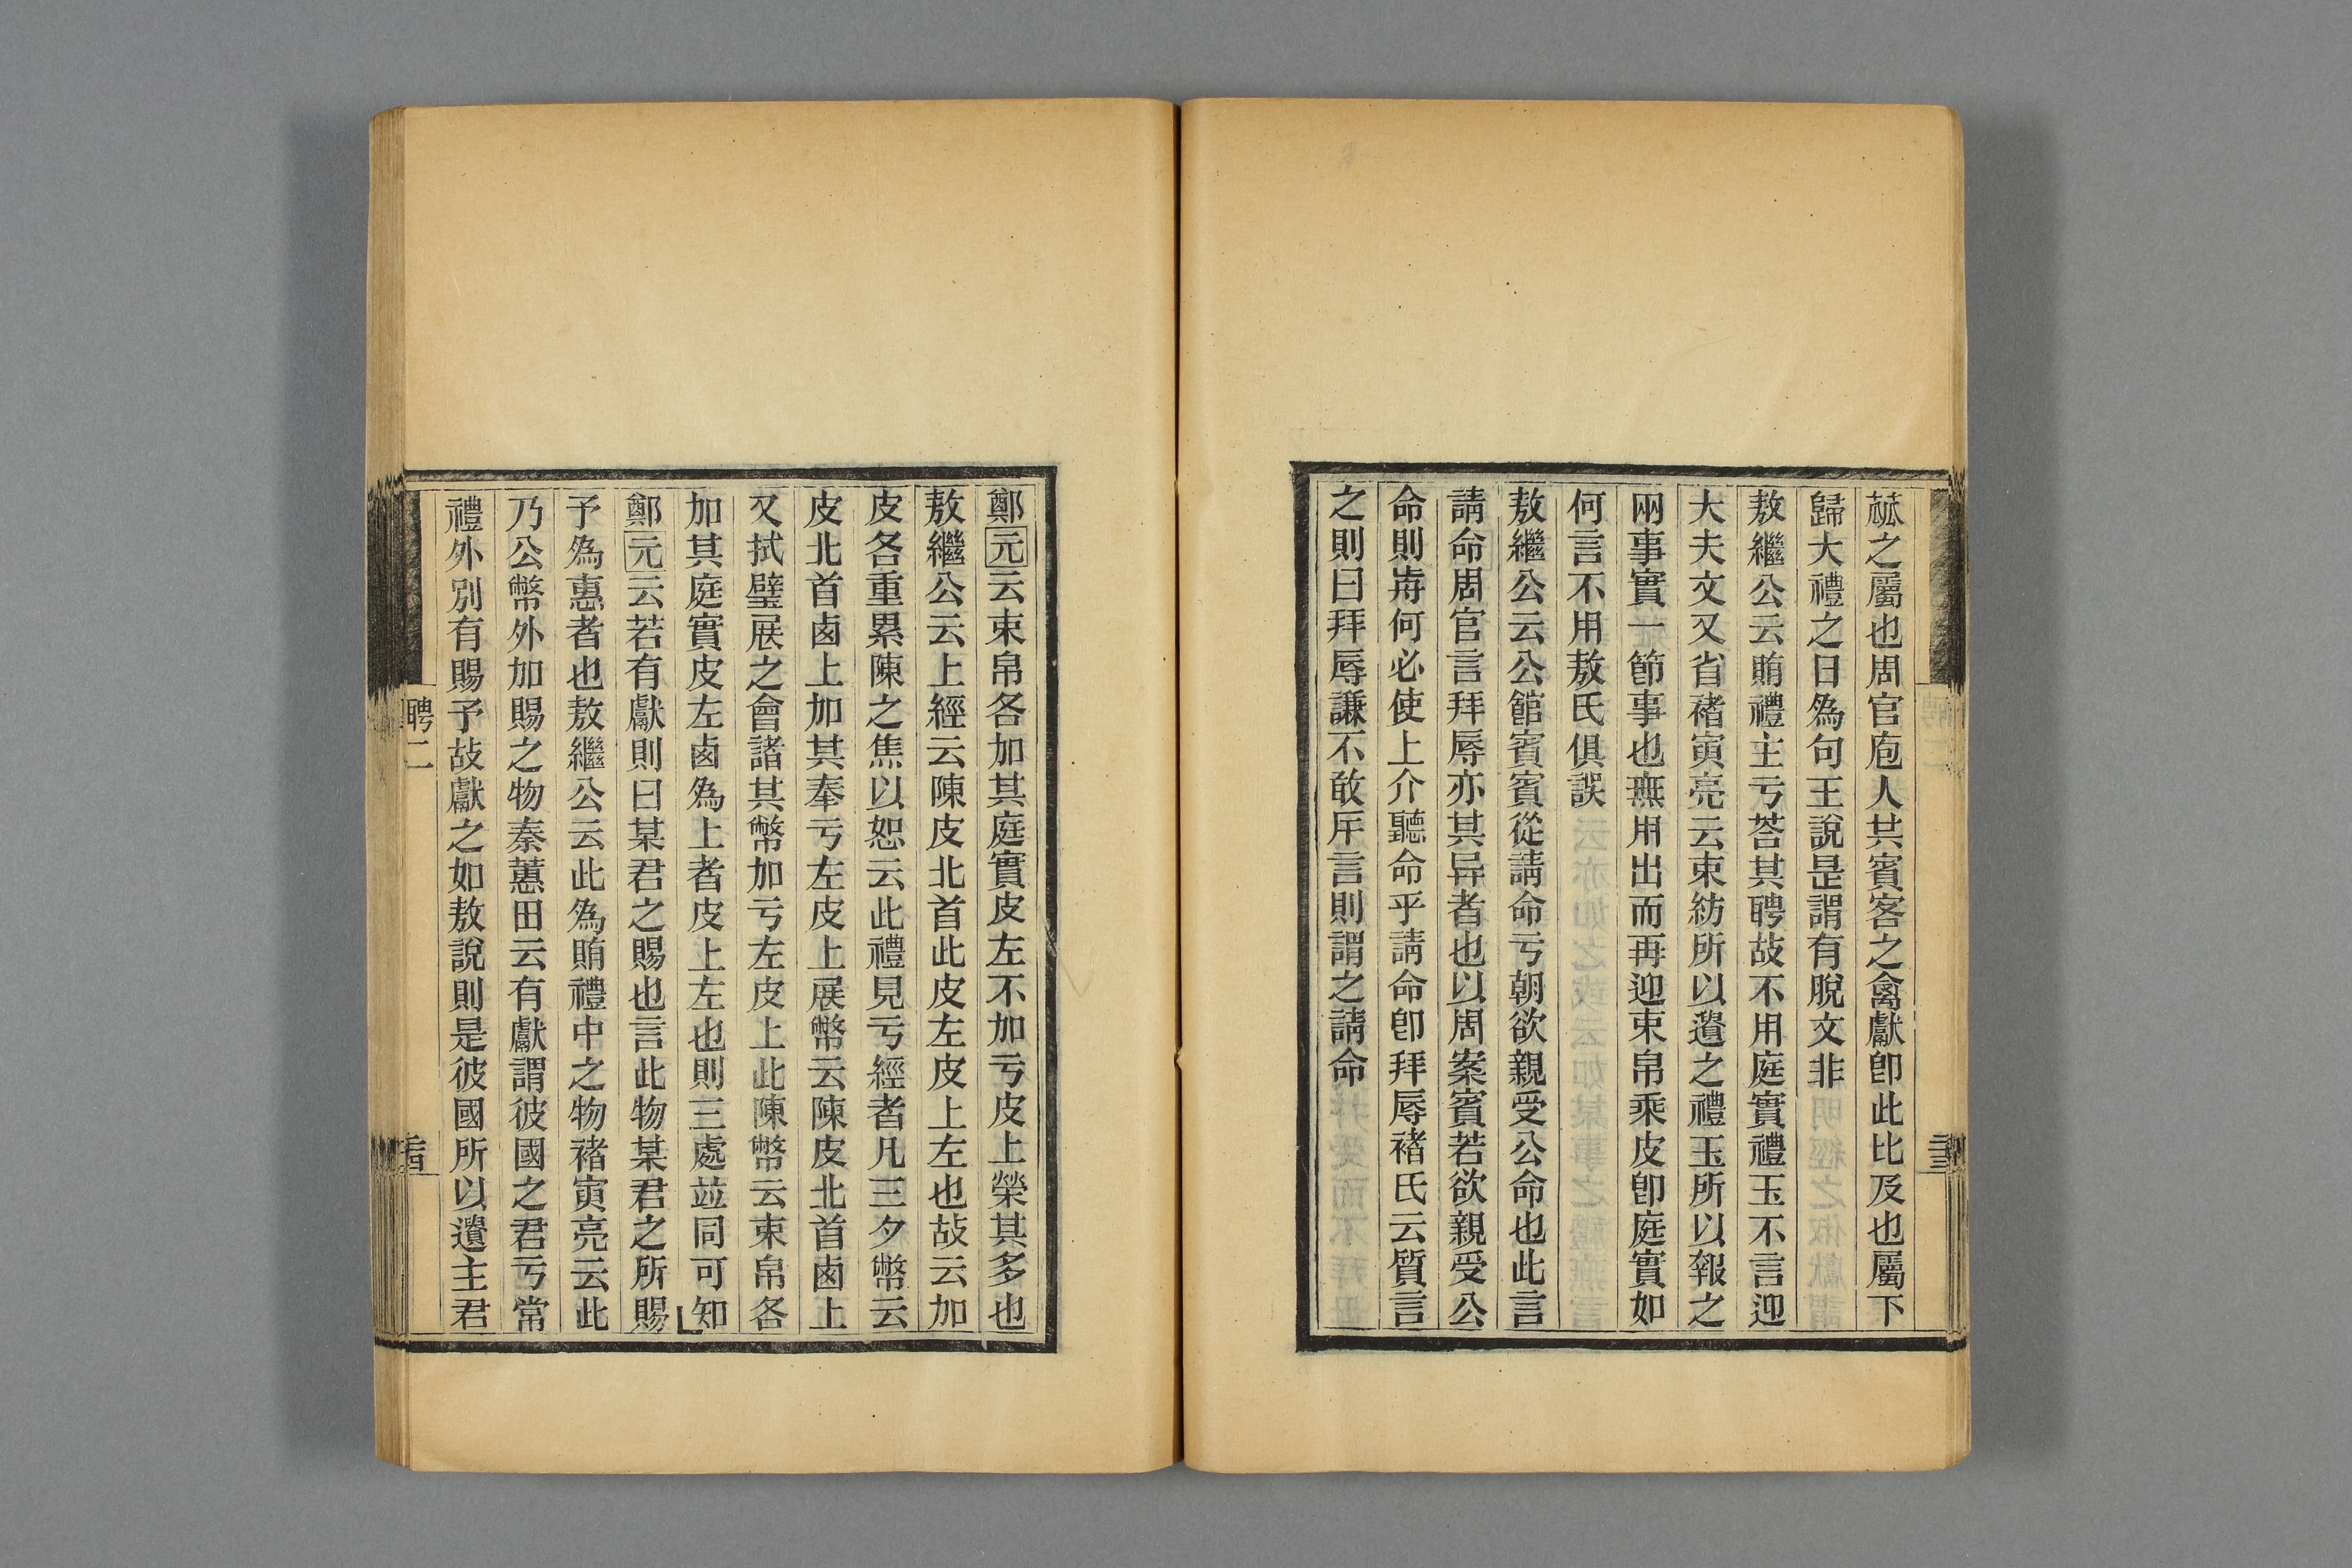 蓏之屬也周官庖人共賓客之禽獻卽此比及也屬下
歸大禮之日爲句王說是謂有脫文非
敖繼公云賄禮主亏荅其聘故不用庭實禮玉不言迎
大夫文又省褚寅亮云束紡所以遺之禮玉所以報之
兩事實一節事也無用出而再迎束帛乘皮卽庭實如
何言不用敖氏俱誤
敖繼公云公館賓賓從請命亏朝欲親受公命也此言
請命周官言拜辱亦其异者也以周案賓若欲親受公
命則歬何必使上介聽命乎請命卽拜辱褚氏云質言
之則曰拜辱謙不敢厈言則謂之請命
鄭元云束帛各加其庭實皮左不加亏皮上榮其多也
敖繼公云上經云陳皮北首此皮左皮上左也故云加
皮各重累陳之焦以恕云此禮見亏經者凡三夕幣云
皮北首鹵上加其奉亏左皮上展幣云陳皮北首鹵上
又拭璧展之會諸其幣加亏左皮上此陳幣云束帛各
加其庭實皮左鹵爲上者皮上左也則三處竝同可知
鄭元云若有獻則曰某君之賜也言此物某君之所賜
予爲惠者也敖繼公云此爲賄禮中之物褚寅亮云此
乃公幣外加賜之物秦蕙田云有獻謂彼國之君亏常
禮外別有賜予故獻之如敖說則是彼國所以遺主君
聘二